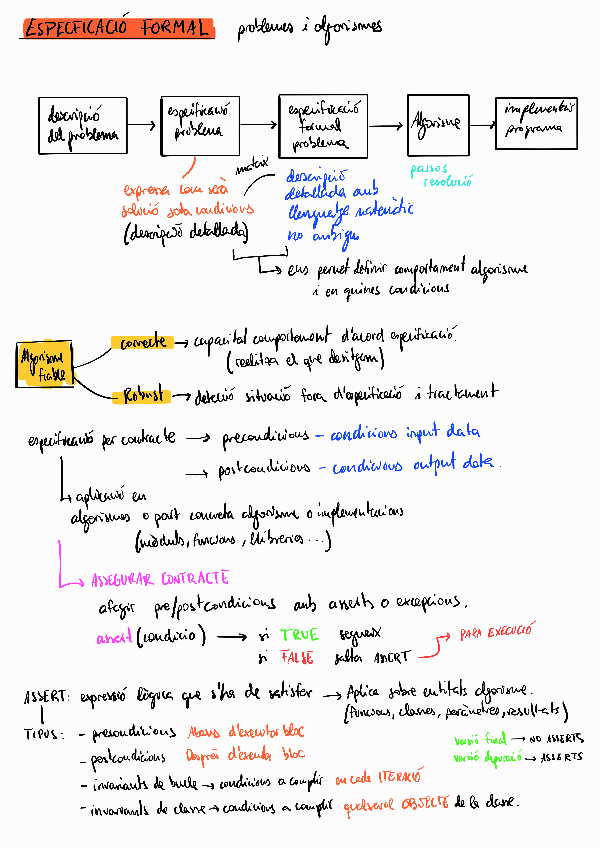 ESPECIFICACIÓ FORMAL problemes i algorismes
descripció
del problema
especificació
problema
especificació
formal
problema
Algorisme
implementació
programa
mateix
expressa com serà
solució sota condicions
(descripció detallada)
descripció
detallada amb
llenguatge matemàtic
no ambigu
passos
resolució
ens permet definir comportament algorisme
i en quines condicions
Algorisme
fiable
correcte → capacitat comportament d'acord especificació.
(realitza el que desitgem)
Robust → detecció situació fora d'especificació i tractament
especificació per contracte → precondicions - condicions input data
→ postcondicions - condicions output data.
aplicació en
algorismes o part concreta algorisme o implementacions
(mòduls, funcions, llibreries...)
ASSEGURAR CONTRACTE
afegir pre/postcondicions amb asserts o excepcions.
assert (condició) → si TRUE segueix
si FALSE salta ASSERT → PARA EXECUCIÓ
ASSERT: expressió lògica que s'ha de satisfer → Aplica sobre entitats algorisme.
(funcions, classes, paràmetres, resultats)
TIPUS: - precondicions Abans d'executar bloc
- postcondicions Després d'executar bloc
versió final → NO ASSERTS
versió depuració → ASSERTS
- invariants de bucle → condicions a complir en cada ITERACIÓ
- invariants de classe → condicions a complir qualsevol OBJECTE de la classe.